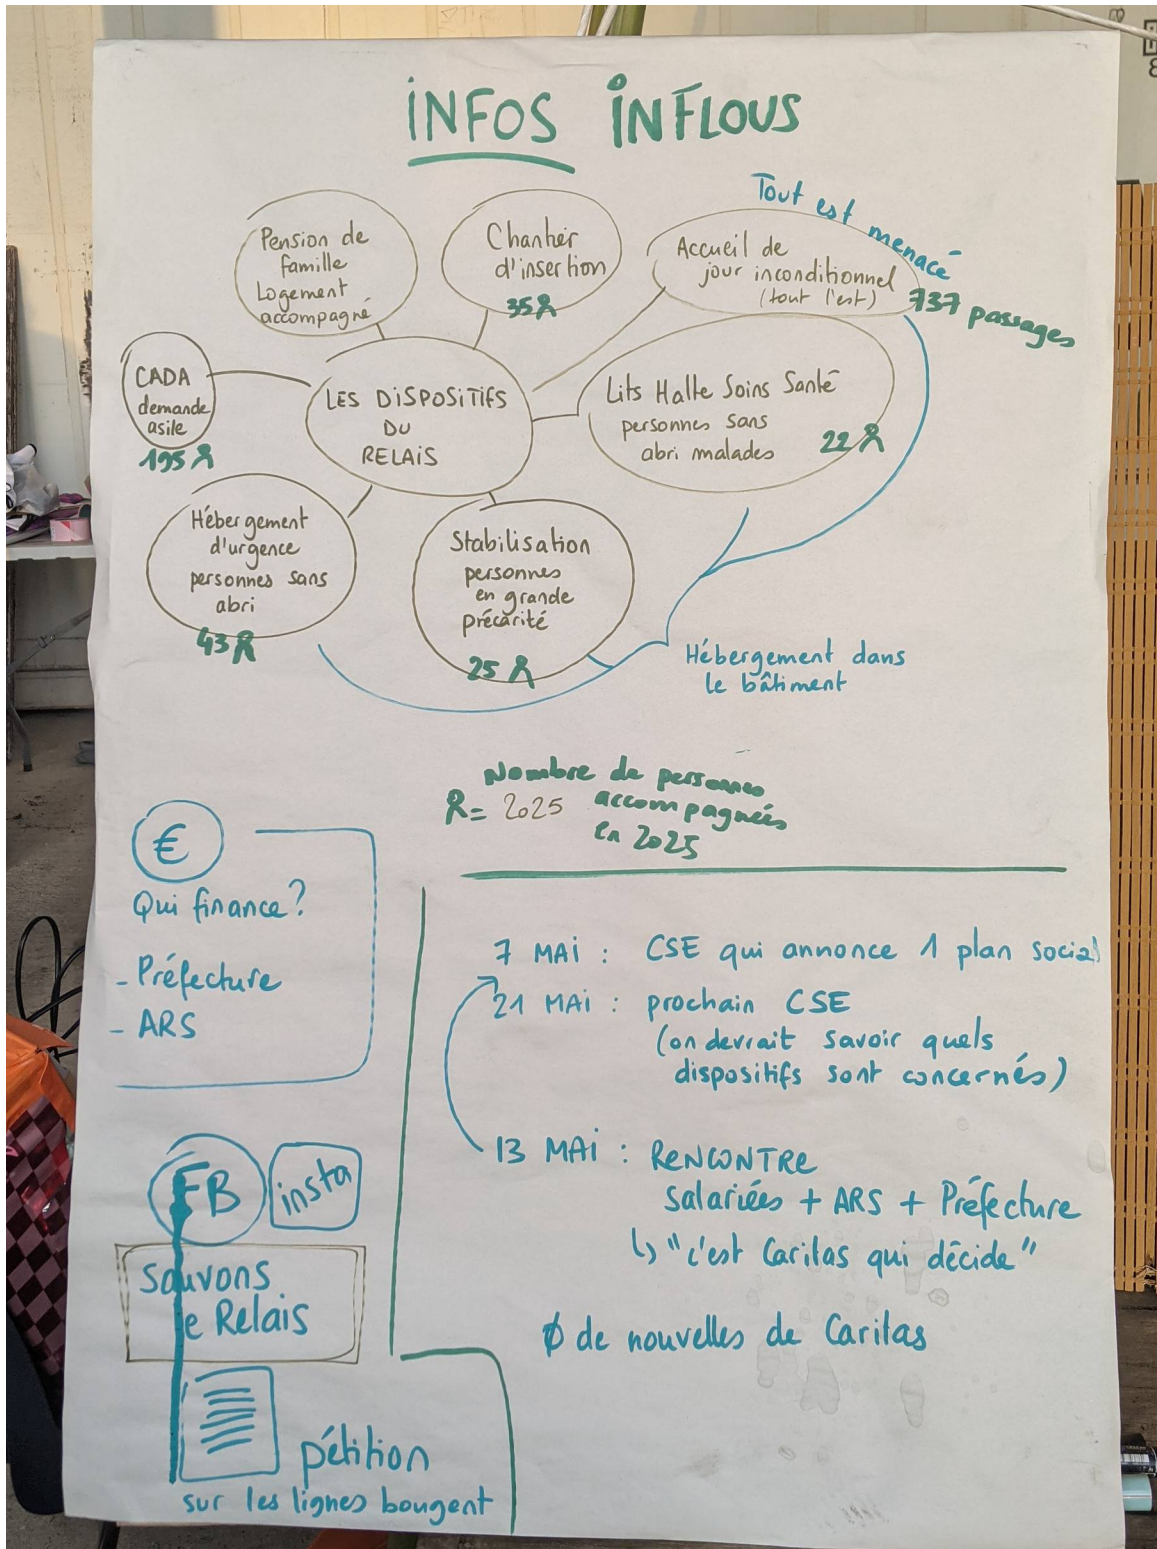 iNFOS iNFLOUS
Tout est menacé
Pension de
famille
Logement
accompagné
Chantier
d'insertion
35
Accueil de
jour inconditionnel
(tout l'est)
737 passages
CADA
demande
asile
195
LES DISPOSITIFS
DU
RELAIS
Lits Halte Soins Santé
personnes sans
abri malades
22
Hébergement
d'urgence
personnes sans
abri
43
Stabilisation
personnes
en grande
précarité
25
Hébergement dans
le bâtiment
Nombre de personnes
= 2025 accompagnées
en 2025
€
Qui finance?
- Préfecture
- ARS
7 MAi : CSE qui annonce 1 plan social
21 MAi : prochain CSE
(on devrait savoir quels
dispositifs sont concernés)
13 MAi : RENCONTRE
Salariées + ARS + Préfecture
↳ "c'est Caritas qui décide"
Ø de nouvelles de Caritas
FB insta
Sauvons
le Relais
pétition
sur les lignes bougent